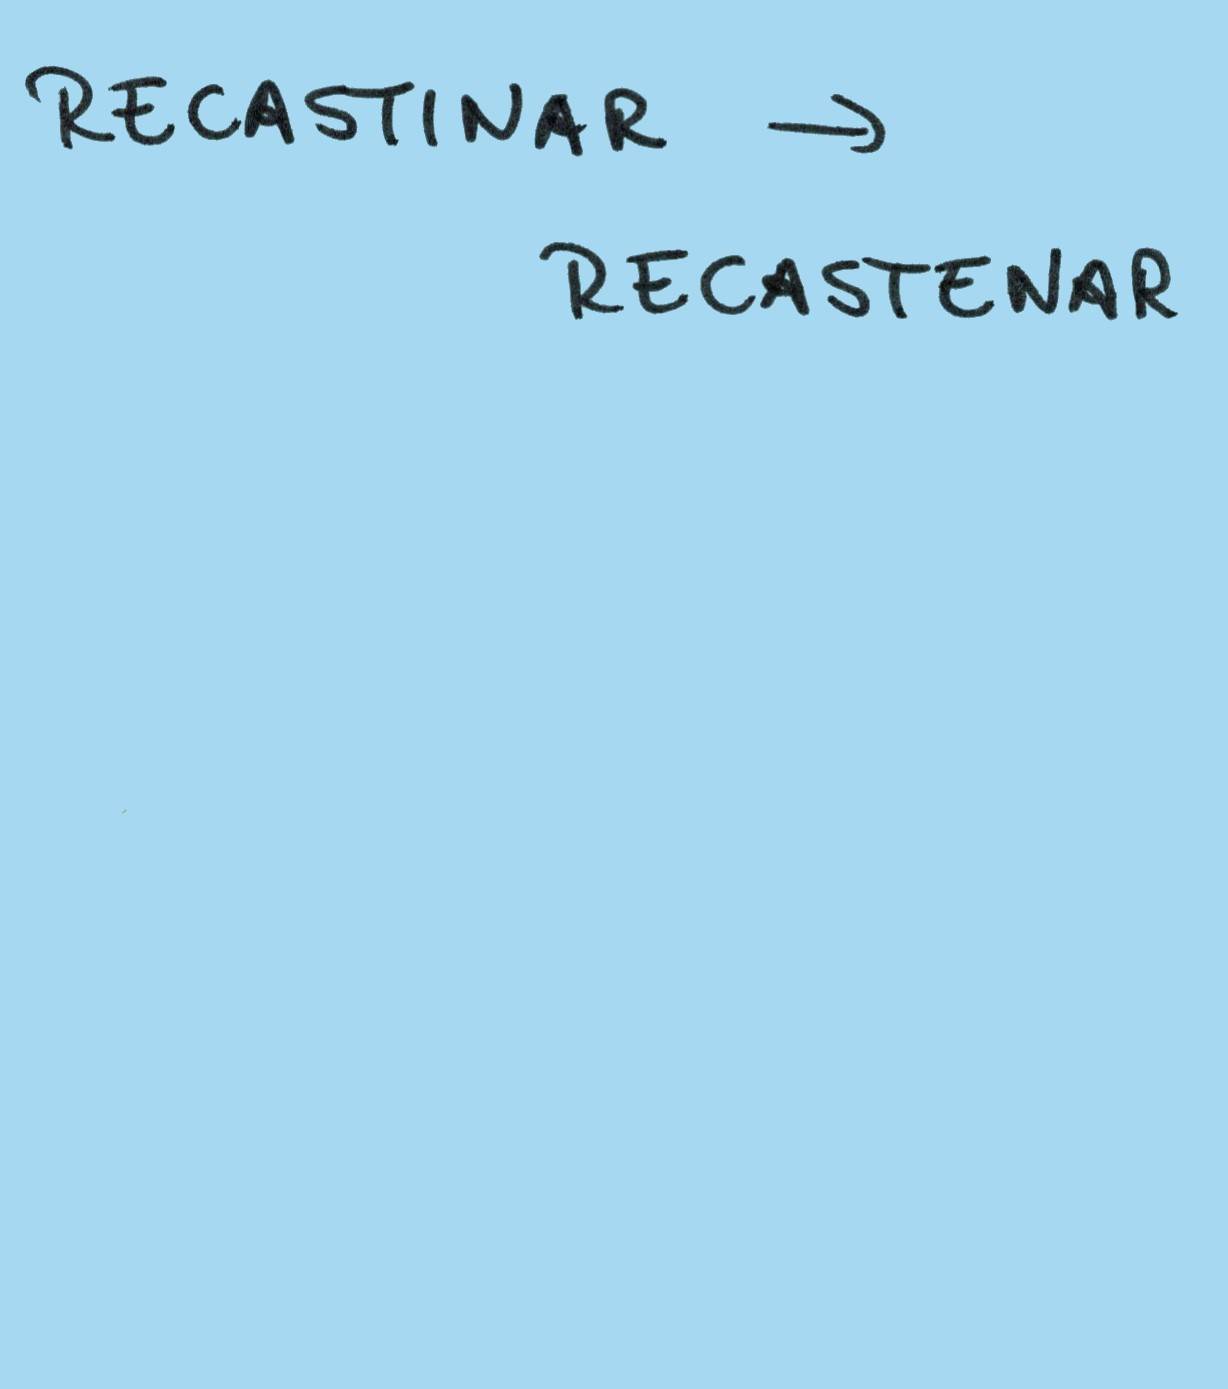 RECASTINAR →
RECASTENAR